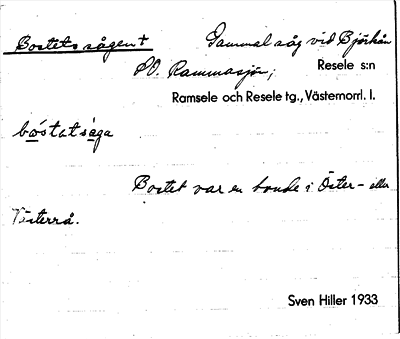 Bostetssågen † Gammal såg vid Björkån
SO. Rammasjön; Resele s:n
Ramsele och Resele tg., Västernorrl. l.
bostatsaga
Bostet var en bonde i Öster- eller
Västerrå.
Sven Hiller 1933